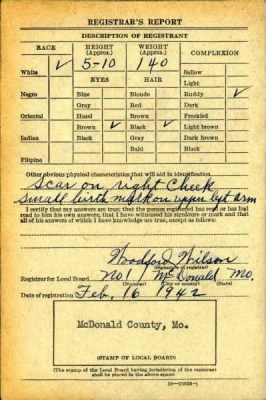 REGISTRAR'S REPORT
DESCRIPTION OF REGISTRANT
RACE HEIGHT (Approx.) WEIGHT (Approx.) COMPLEXION
White ✓ 5-10 140 Sallow
EYES HAIR Light
Negro Blue Blonde Ruddy ✓
Gray Red Dark
Oriental Hazel Brown Freckled
Brown ✓ Black ✓ Light brown
Indian Black Gray Dark brown
Bald Black
Filipino
Other obvious physical characteristics that will aid in identification
Scar on right Cheek
Small birth mark on upper arm
I certify that my answers are true; that the person registered has read or has had
read to him his own answers; that I have witnessed his signature or mark and that
all of his answers of which I have knowledge are true, except as follows:
Woodford Wilson
(Signature of registrar)
Registrar for Local Board No 1 McDonald Mo.
(Number) (City or county) (State)
Date of registration Feb. 16 1942
McDonald County, Mo.
(STAMP OF LOCAL BOARD)
(The stamp of the Local Board having jurisdiction of the registrant
shall be placed in the above space)